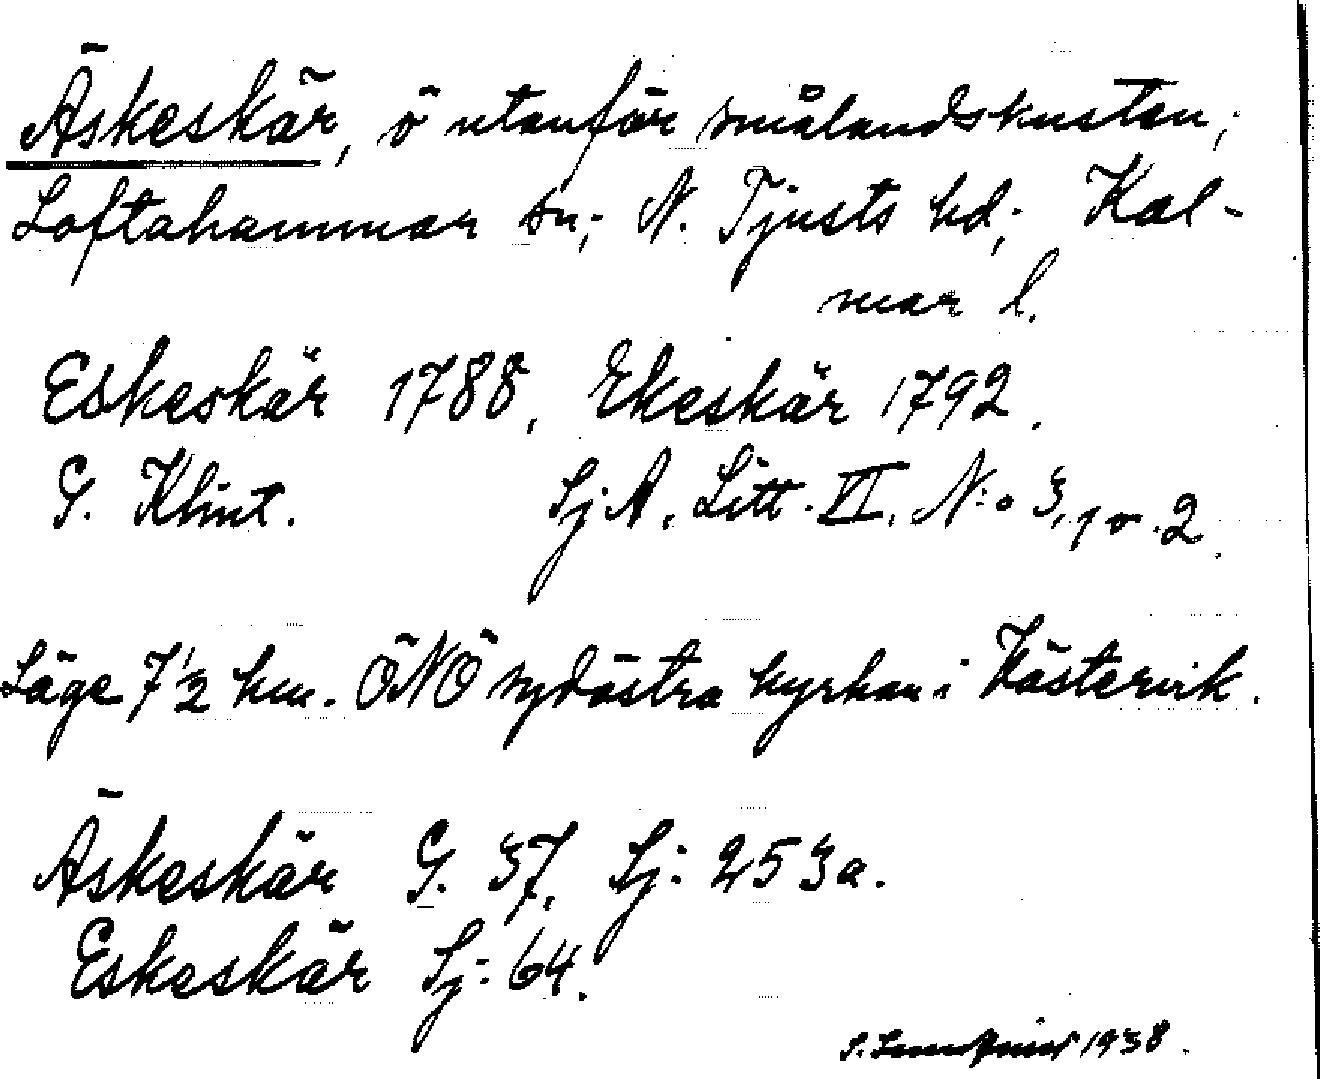 Äskeskär, ö utanför smålandskusten;
Loftahammar sn; N. Tjusts hd; Kal-
mar l.
Eskeskär 1788, Ekeskär 1792.
G. Klint. Sj A. Litt. VI. N:o 3, 1 o. 2.
Läge 7 1/2 km. ÖNÖ sydöstra kyrkan i Västervik.
Äskeskär G. 37, Sj: 253a.
Eskeskär Sj: 64.
1938.